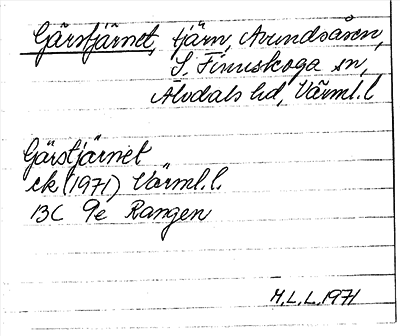 Gärstjärnet, tjärn, Avundsåsen,
S. Finnskoga sn,
Älvdals hd, Värml. l
Gärstjärnet
ek (1971) Värml. l.
13C 9e Rangen
M.L.L. 1971